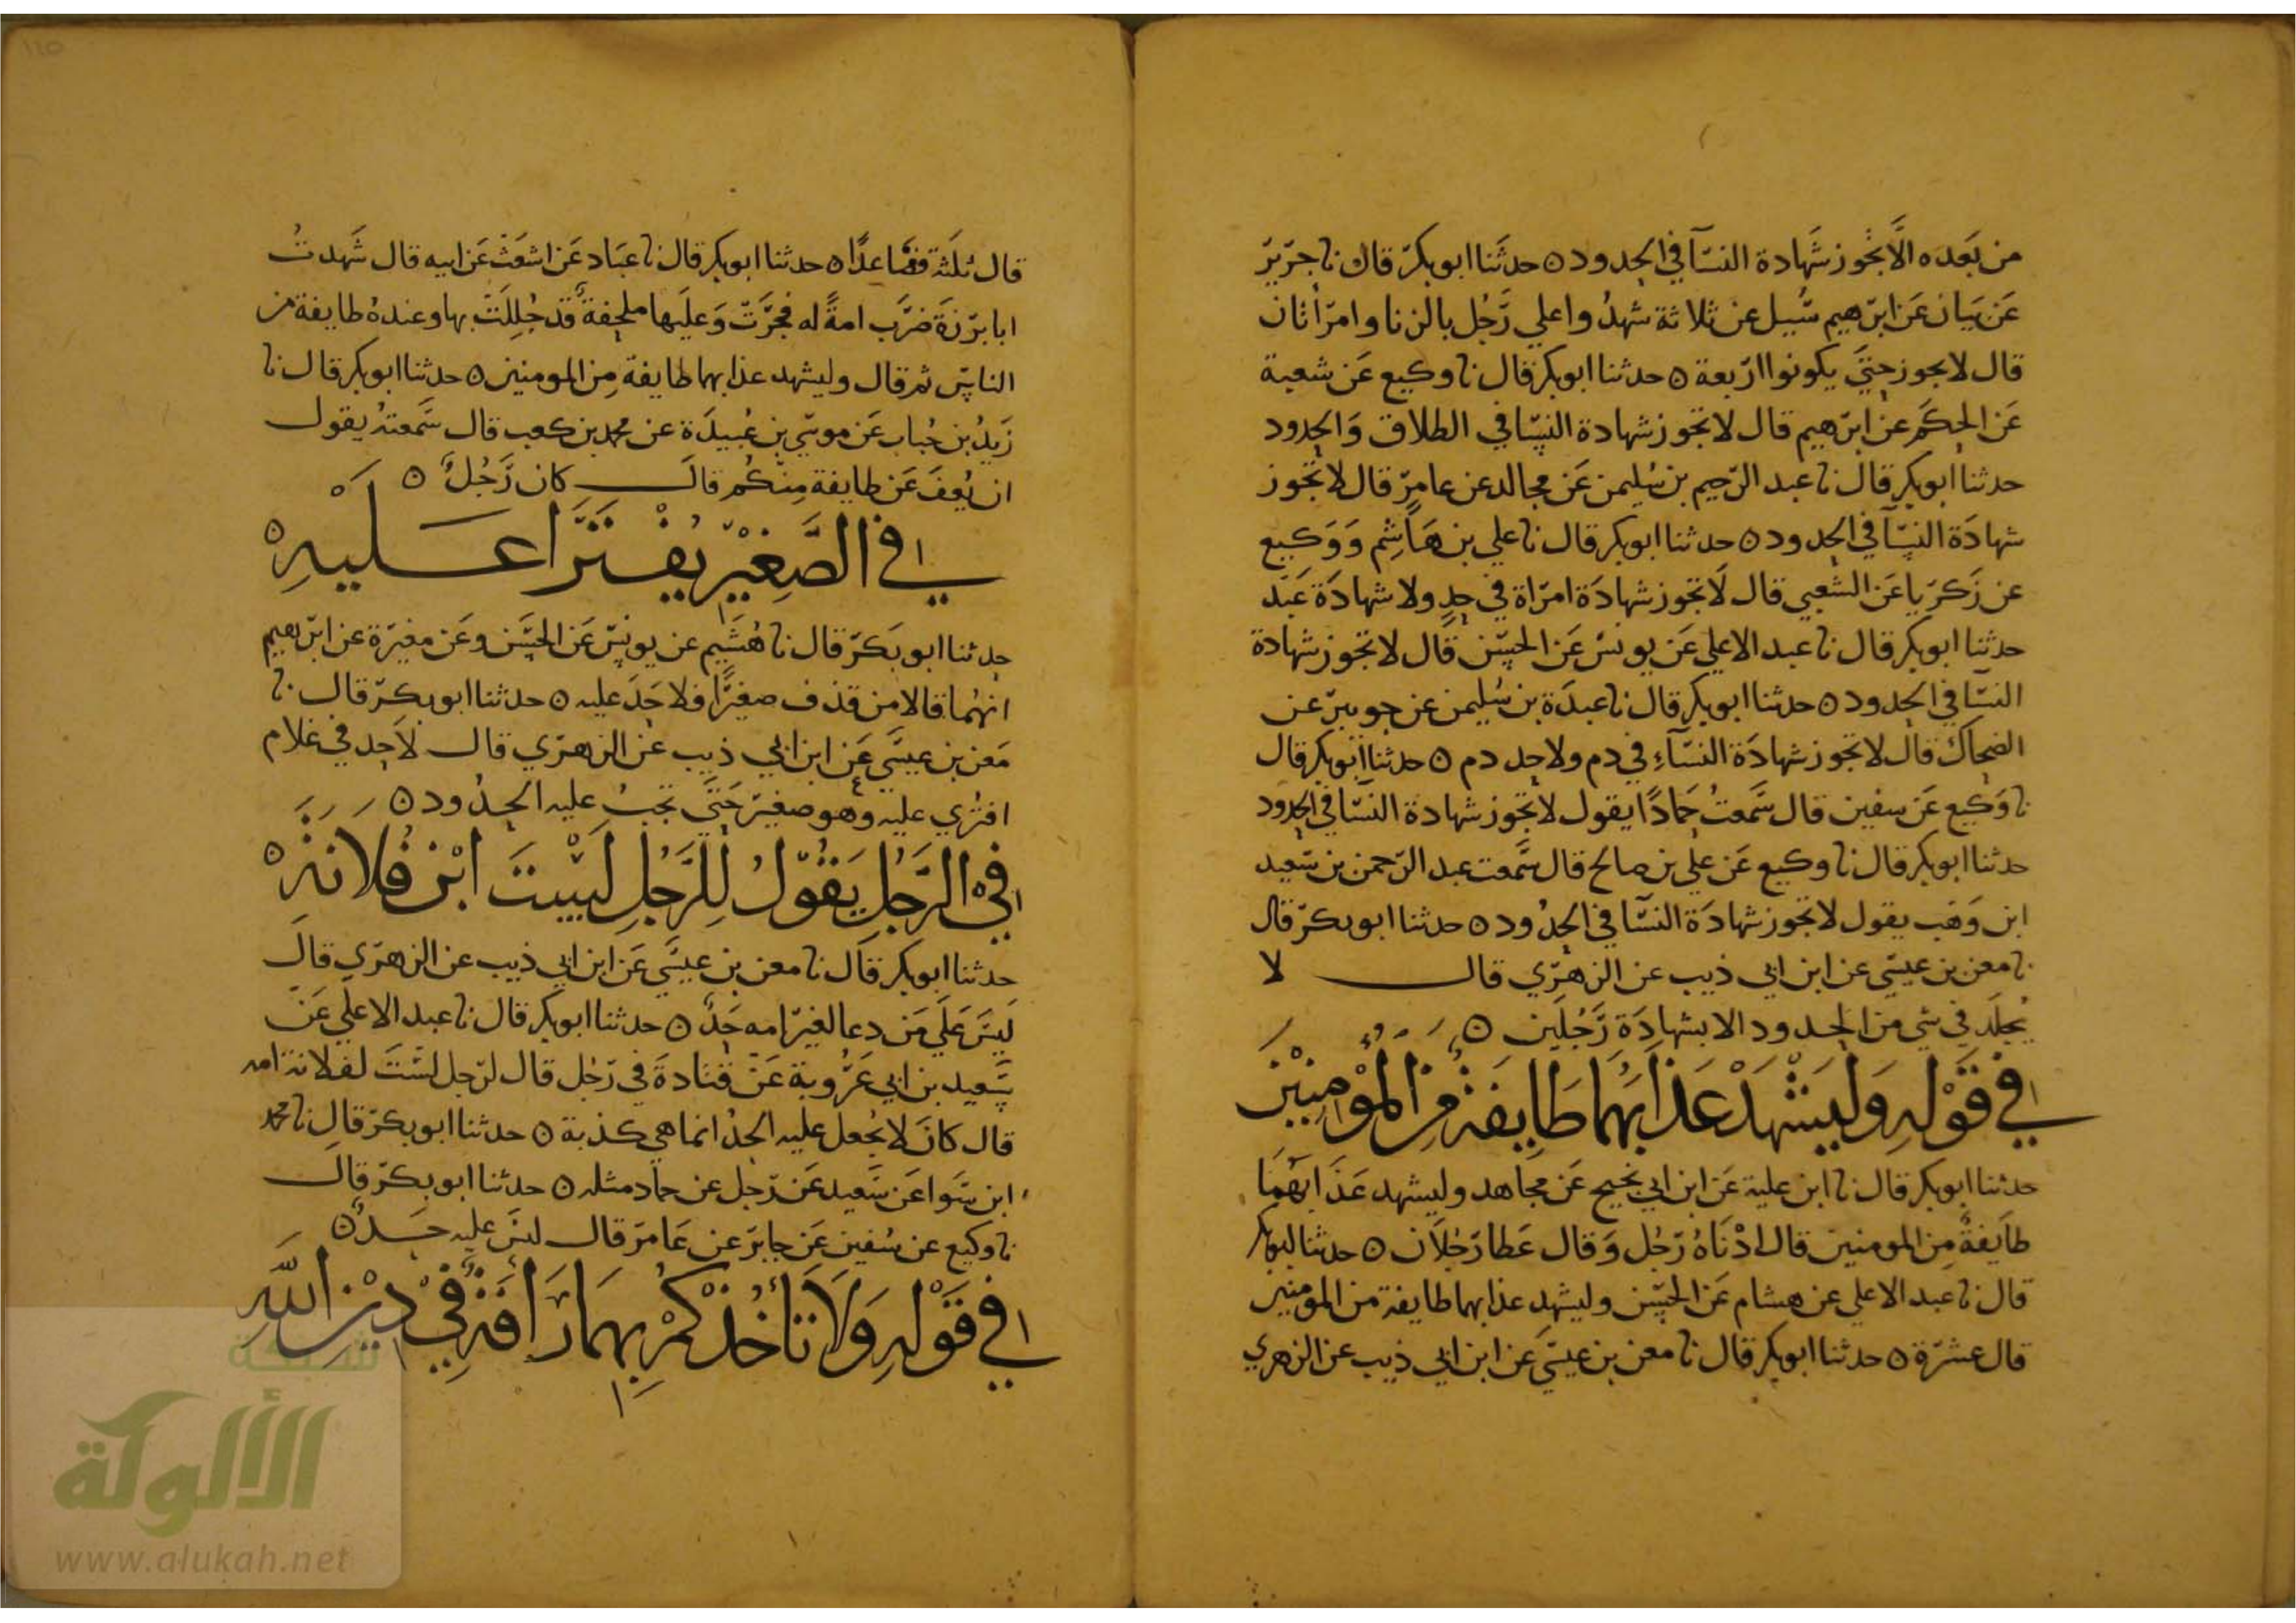 من بعده الا تجوز شهادة النسآ في الحدود ه حدثنا ابو بكر قال نا جرير
عن بيان عن ابرهيم سُيل عن ثلاثة شهدوا علي رجل بالزنا وامراتان
قال لا يجوز حتي يكونوا اربعة ه حدثنا ابو بكر قال نا وكيع عن شعبة
عن الحكم عن ابرهيم قال لا تجوز شهادة النسا في الطلاق والحدود
حدثنا ابو بكر قال نا عبد الرحيم بن سليمن عن مجالد عن عامر قال لا تجوز
شهادة النسآ في الحدود ه حدثنا ابو بكر قال نا علي بن هاشم ووكيع
عن زكريا عن الشعبي قال لا تجوز شهادة امراة في حد ولا شهادة عبد
حدثنا ابو بكر قال نا عبد الاعلي عن يونس عن الحسن قال لا تجوز شهادة
النسا في الحدود ه حدثنا ابو بكر قال نا عبدة بن سليمن عن جويبر عن
الضحاك قال لا تجوز شهادة النسآء في دم ولا حد دم ه حدثنا ابو بكر قال
نا وكيع عن سفين قال سمعت حمادًا يقول لا تجوز شهادة النسا في الحدود
حدثنا ابو بكر قال نا وكيع عن علي بن صالح قال سمعت عبد الرحمن بن سعيد
ابن وهب يقول لا تجوز شهادة النسا في الحدود ه حدثنا ابو بكر قال
نا معن بن عيسي عن ابن ابي ذيب عن الزهري قال لا
يجلد في شي من الحدود الا بشهادة رجلين ه
في قوله وليشهد عذابهما طايفة من المؤمنين
حدثنا ابو بكر قال نا ابن علية عن ابن ابي نجيح عن مجاهد وليشهد عذابهما
طايفة من المومنين قال ادناه رجل وقال عطا رجلان ه حدثنا ابو بكر
قال نا عبد الاعلي عن هشام عن الحسن وليشهد عذابهما طايفة من المومنين
قال عشرة ه حدثنا ابو بكر قال نا معن بن عيسي عن ابن ابي ذيب عن الزهري
قال ثلثة فصاعدًا ه حدثنا ابو بكر قال نا عباد عن اشعث عن ابيه قال شهدت
ابا برزة ضرب امة له فجرت وعليها ملحفة قد جللت بها وعنده طايفة من
الناس ثم قال وليشهد عذابهما طايفة من المومنين ه حدثنا ابو بكر قال نا
زيد بن حباب عن موسي بن عبيدة عن محمد بن كعب قال سمعته يقول
ان يعف عن طايفة منكم قال كان رجل ه
في الصغير يفترا عليه ه
حدثنا ابو بكر قال نا هشيم عن يونس عن الحسن وعن مغيرة عن ابرهيم
انهما قالا من قذف صغيرًا فلا حد عليه ه حدثنا ابو بكر قال نا
معن بن عيسي عن ابن ابي ذيب عن الزهري قال لا حد في غلام
افتري عليه وهو صغير حتي تجب عليه الحدود ه
في الرجل يقول للرجل لست ابن فلانة ه
حدثنا ابو بكر قال نا معن بن عيسي عن ابن ابي ذيب عن الزهري قال
ليس علي من دعا لغير امه حد ه حدثنا ابو بكر قال نا عبد الاعلي عن
سعيد بن ابي عروبة عن قتادة في رجل قال لرجل لست لفلانة امه
قال كان لا يجعل عليه الحد انما هي كذبة ه حدثنا ابو بكر قال نا محمد
ابن سوا عن سعيد عن رجل عن حماد مثله ه حدثنا ابو بكر قال
نا وكيع عن سفين عن جابر عن عامر قال ليس عليه حد ه
في قوله ولا تأخذكم بهما رافة في دين الله
شبكة
الألوكة
www.alukah.net